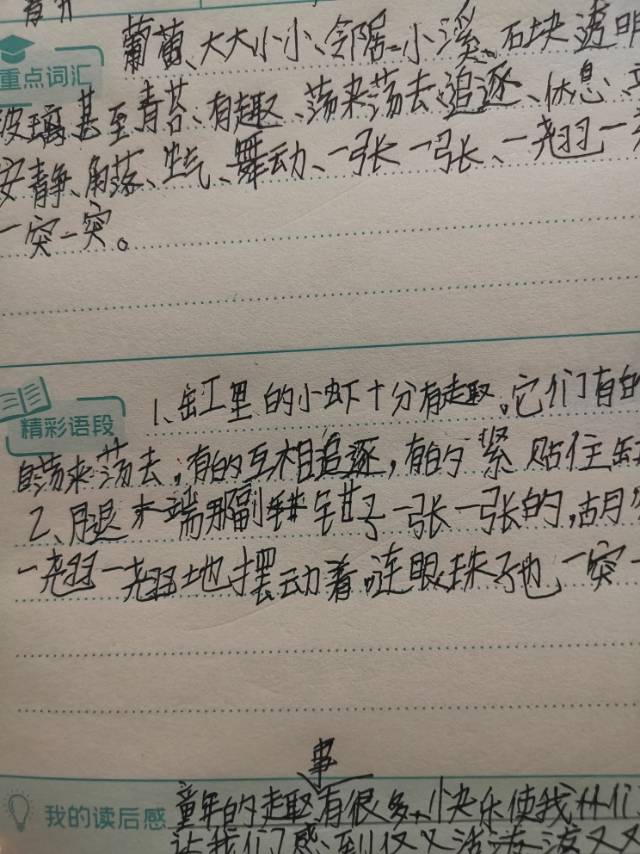 重点词汇
葡萄、大大小小、邻居、小溪、石块透明
玻璃、甚至青苔、有趣、荡来荡去、追逐、休息、
安静、角落、生气、舞动、一张一张、一翘一
一突一突。
精彩语段
1、缸里的小虾十分有趣。它们有的
自荡来荡去,有的互相追逐,有的紧贴住缸
2、腿末端那副钳子一张一张的,胡
一翘一翘地摆动着,连眼珠子也一突一
事
我的读后感
童年的趣有很多,快乐使我们
让我们感到